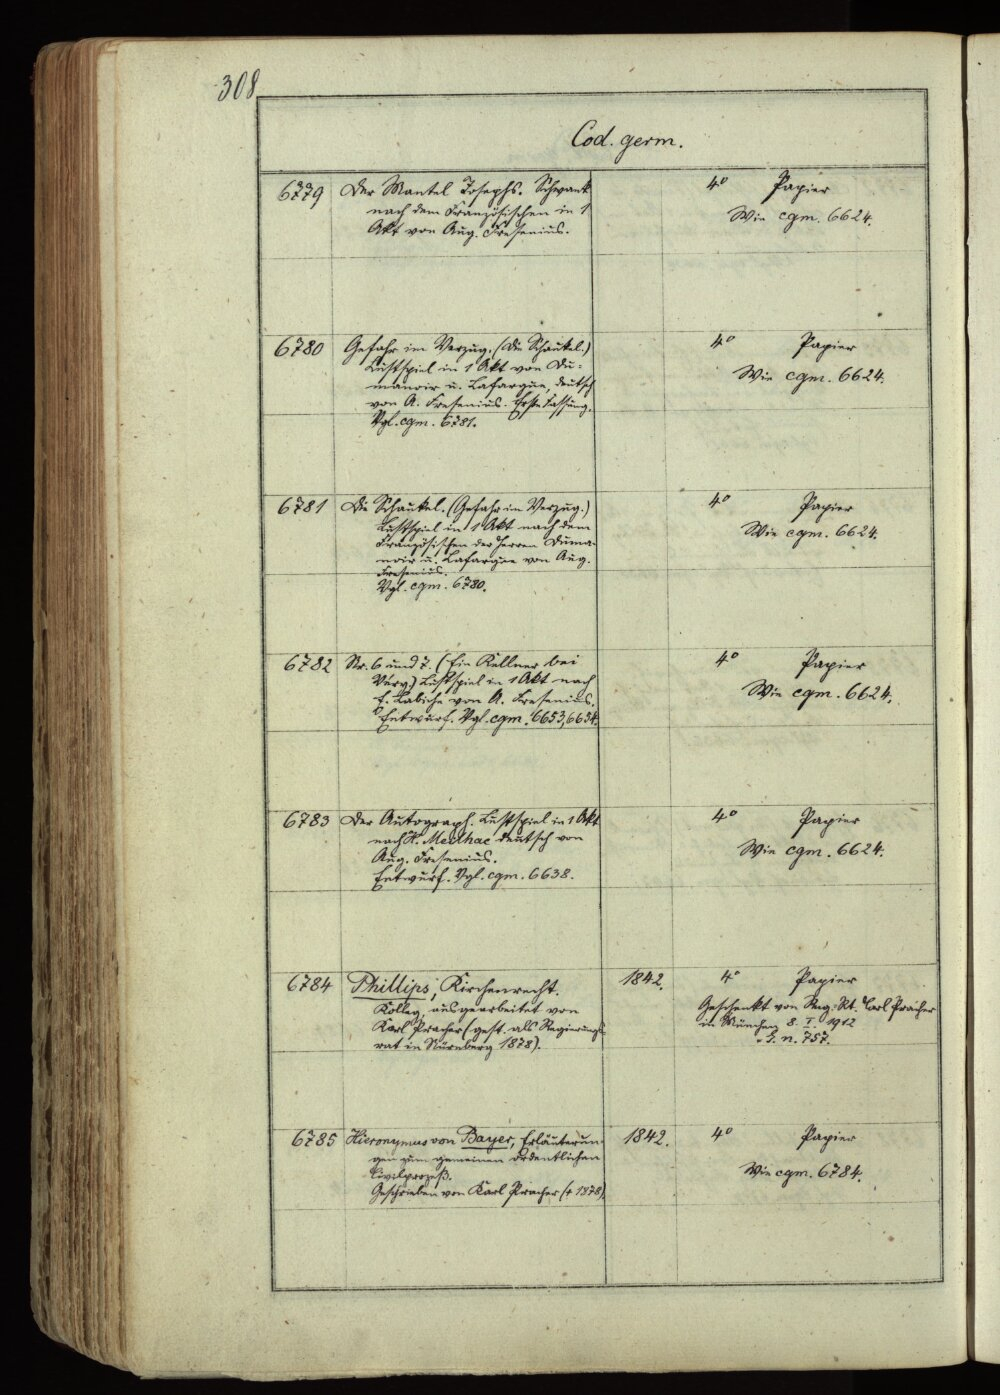 308
Cod. germ.
6779 Der Mantel Josephs. Schwank 4° Papier
nach dem Französischen in 1 Wie cgm. 6624.
Akt von Aug. Fresenius.
6780 Gefahr im Verzug. (Die Schaukel.) 4° Papier
Lustspiel in 1 Akt von Du- Wie cgm. 6624.
manoir u. Lafargue, deutsch
von A. Fresenius. Erste Fassung.
Vgl. cgm. 6781.
6781 Die Schaukel. (Gefahr im Verzug.) 4° Papier
Lustspiel in 1 Akt nach dem Wie cgm. 6624.
Französischen der Herren Duma-
noir u. Lafargue von Aug.
Fresenius.
Vgl. cgm. 6780.
6782 Nr. 6 und 7. (Ein Kellner bei 4° Papier
Véry.) Lustspiel in 1 Akt nach Wie cgm. 6624.
E. Labiche von A. Fresenius.
Entwurf. Vgl. cgm. 6653, 6654.
6783 Der Autograph. Lustspiel in 1 Akt 4° Papier
nach H. Meilhac deutsch von Wie cgm. 6624.
Aug. Fresenius.
Entwurf. Vgl. cgm. 6638.
6784 Phillips, Kirchenrecht. 1842. 4° Papier
Kolleg, ausgearbeitet von Geschenkt von Reg.-Rt. Carl Pracher
Karl Pracher (gest. als Regierungs- in München 8. I. 1912
rat in Nürnberg 1878). n. 757.
6785 Hieronymus von Bayer, Erläuterun- 1842. 4° Papier
gen zum gemeinen ordentlichen Wie cgm. 6784.
Civilprozeß.
Geschrieben von Karl Pracher († 1878)